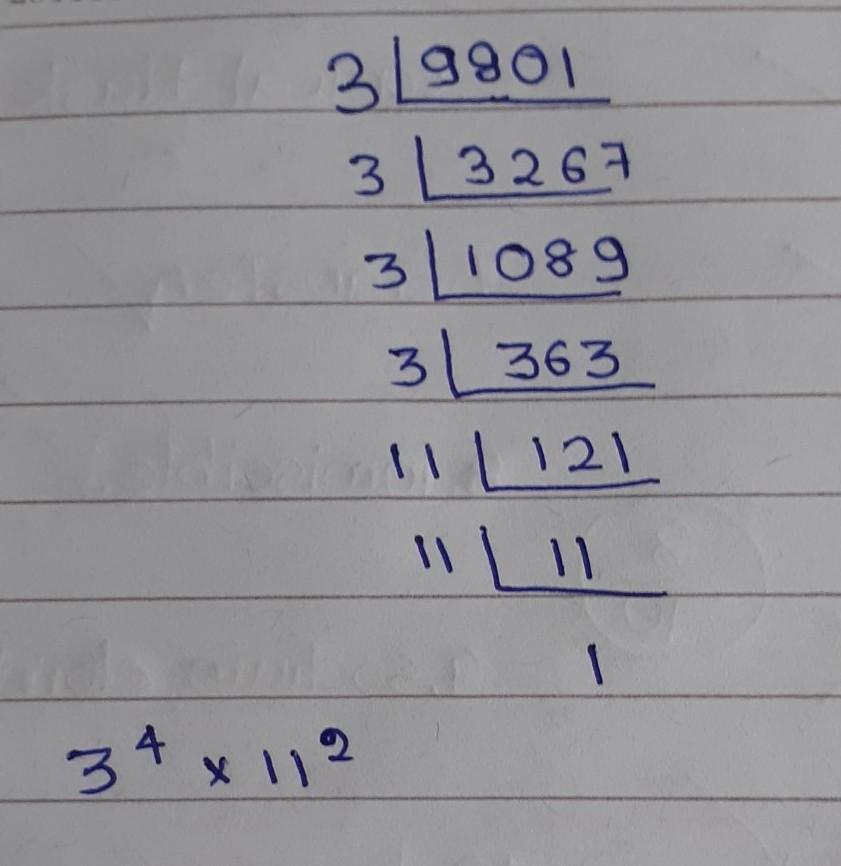 3 | 9801
3 | 3267
3 | 1089
3 | 363
11 | 121
11 | 11
1
3⁴ × 11²